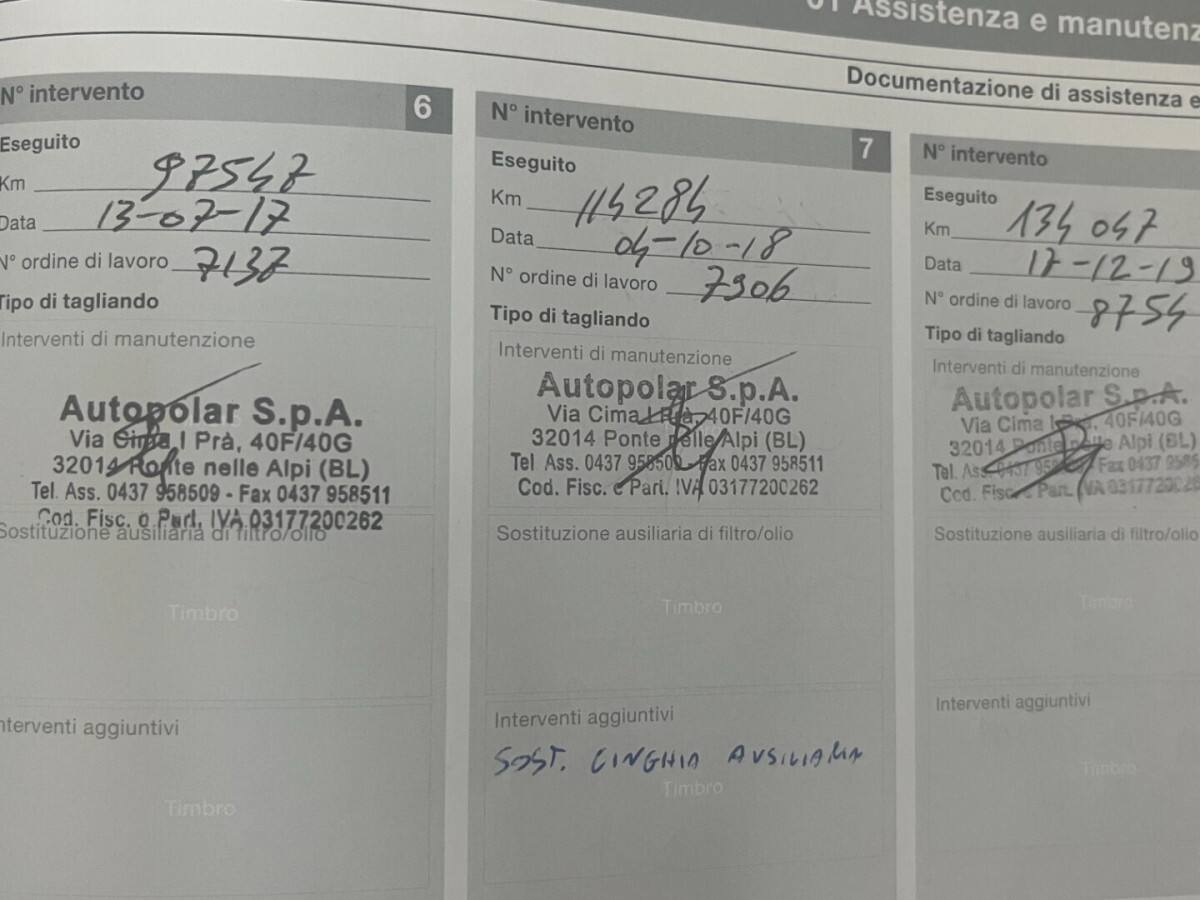 01 Assistenza e manutenz
Documentazione di assistenza e
N° intervento 6
Eseguito
Km 97547
Data 13-07-17
N° ordine di lavoro 7137
Tipo di tagliando
Interventi di manutenzione
Autopolar S.p.A.
Via Cima I Prà, 40F/40G
32014 Ponte nelle Alpi (BL)
Tel. Ass. 0437 958509 - Fax 0437 958511
Cod. Fisc. e Part. IVA 03177200262
Sostituzione ausiliaria di filtro/olio
Timbro
nterventi aggiuntivi
Timbro
N° intervento 7
Eseguito
Km 114284
Data 04-10-18
N° ordine di lavoro 7906
Tipo di tagliando
Interventi di manutenzione
Autopolar S.p.A.
Via Cima I Prà, 40F/40G
32014 Ponte nelle Alpi (BL)
Tel Ass. 0437 958509 - Fax 0437 958511
Cod. Fisc. e Part. IVA 03177200262
Sostituzione ausiliaria di filtro/olio
Timbro
Interventi aggiuntivi
SOST. CINGHIA AUSILIARIA
Timbro
N° intervento
Eseguito
Km 134 047
Data 17-12-19
N° ordine di lavoro 8754
Tipo di tagliando
Interventi di manutenzione
Autopolar S.p.A.
Via Cima I Prà, 40F/40G
32014 Ponte nelle Alpi (BL)
Tel. Ass. 0437 958509 Fax 0437 9585
Cod. Fisc. e Part. IVA 031772002
Sostituzione ausiliaria di filtro/olio
Timbro
Interventi aggiuntivi
Timbro